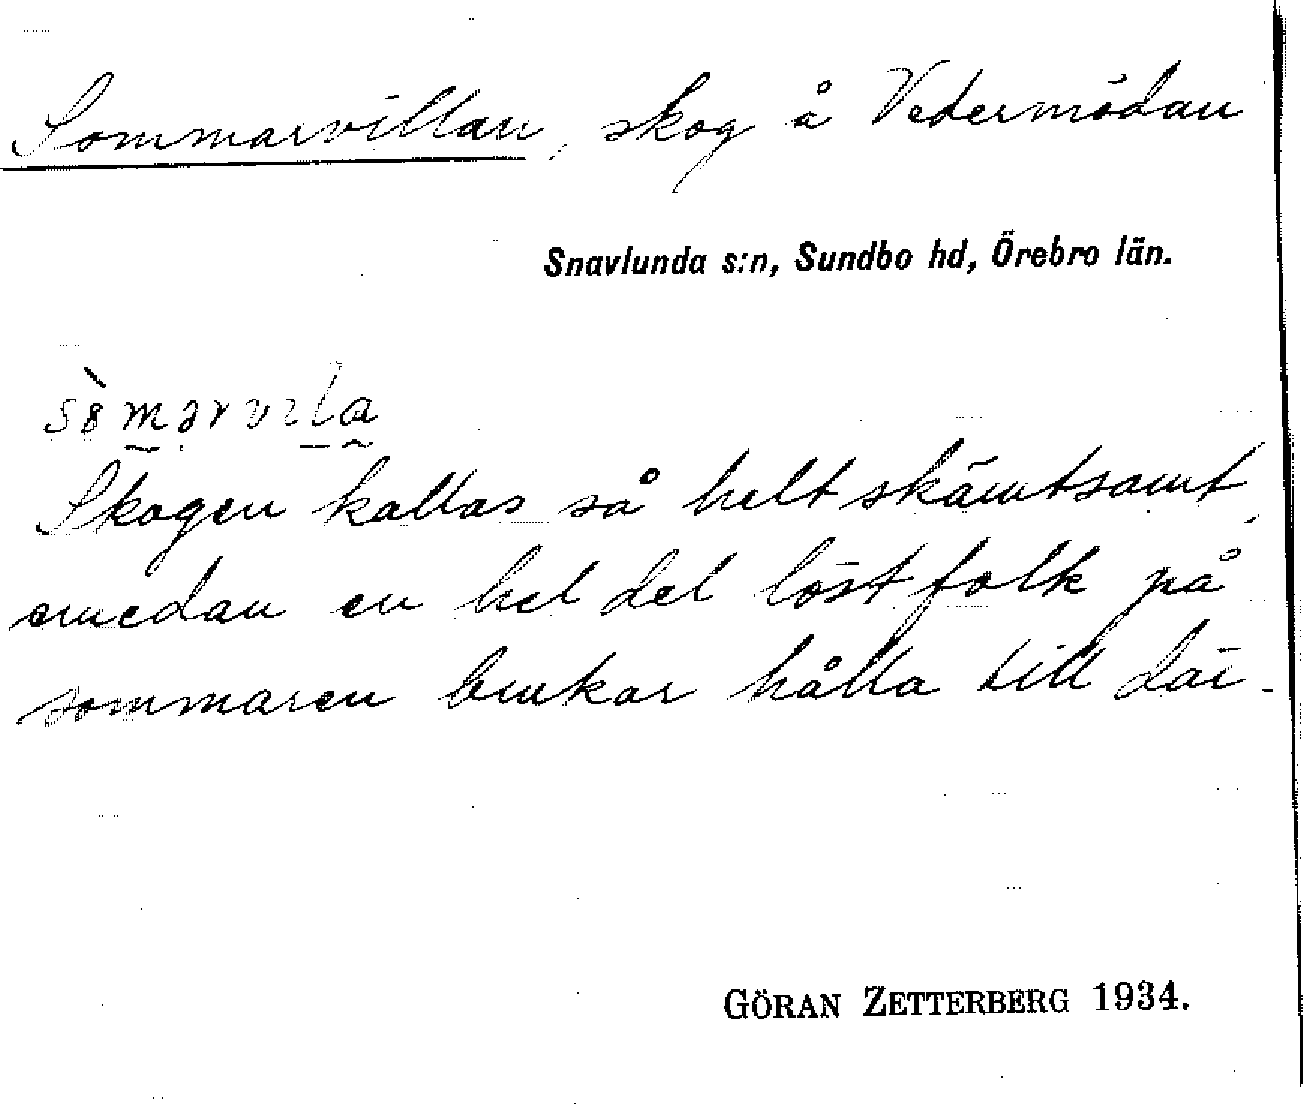 Sommarvillan, skog å Vedermödan
Snavlunda s:n, Sundbo hd, Örebro län.
Skogen kallas så helt skämtsamt,
emedan en hel del löst folk på
sommaren brukar hålla till där.
GÖRAN ZETTERBERG 1934.